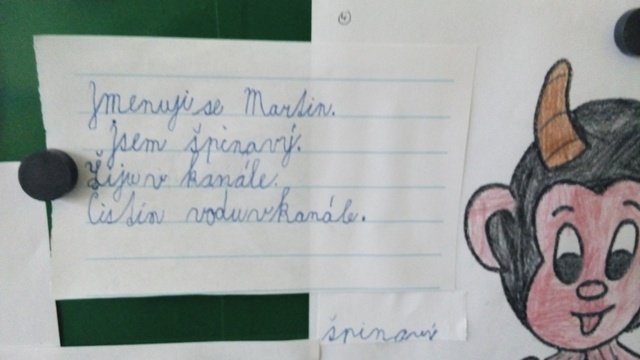 Jmenuji se Martin.
Jsem špinavý.
Žiju v kanále.
Čistím vodu v kanále.
špinavý